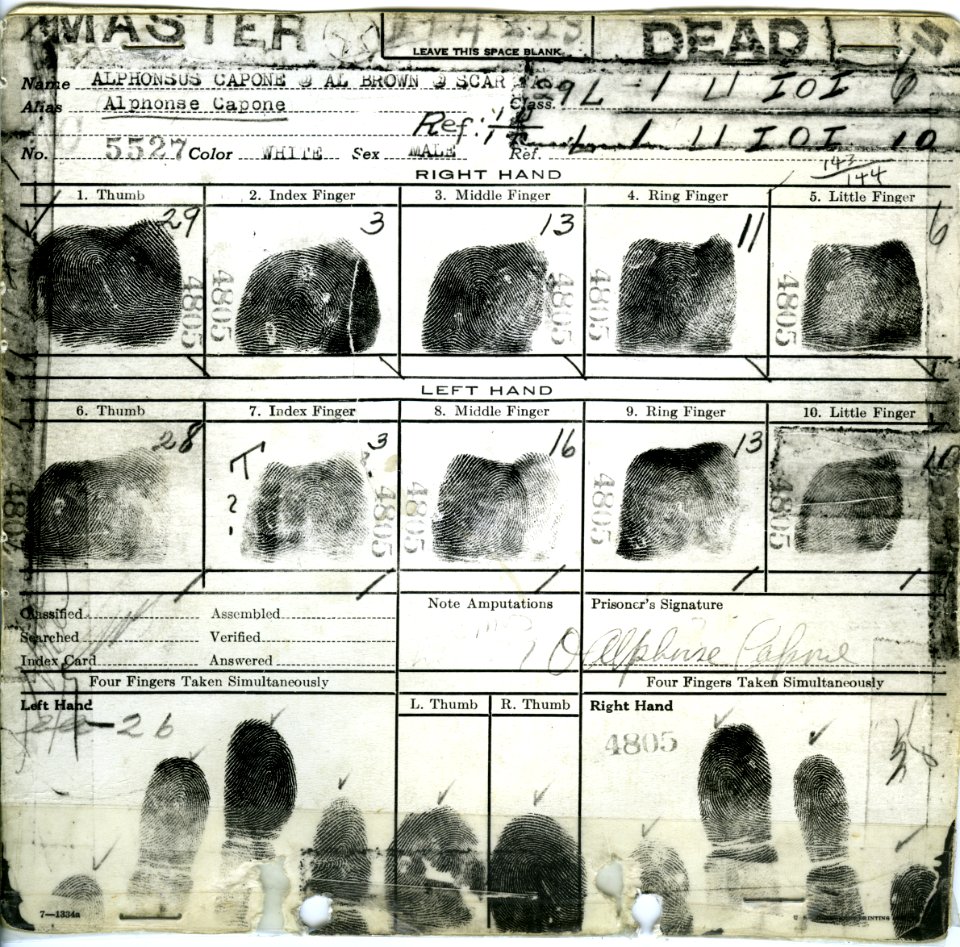 MASTER DEAD
LEAVE THIS SPACE BLANK
Name ALPHONSUS CAPONE @ AL BROWN @ SCAR
Class. 9 L 1 U IOI 6
Alias Alphonse Capone
Ref: 1 U IOI 10
No. 5527 Color WHITE Sex MALE Ref.
143
144
RIGHT HAND
1. Thumb 2. Index Finger 3. Middle Finger 4. Ring Finger 5. Little Finger
29 3 13 11 6
4805 4805 4805 4805 4805
LEFT HAND
6. Thumb 7. Index Finger 8. Middle Finger 9. Ring Finger 10. Little Finger
28 T ? 3 ? 16 13 10
4805 4805 4805 4805 4805
Classified Assembled
Searched Verified
Index Card Answered
Note Amputations
Prisoner's Signature
Alphonse Capone
Four Fingers Taken Simultaneously
Four Fingers Taken Simultaneously
Left Hand
L. Thumb R. Thumb
Right Hand
26
4805
7—1334a